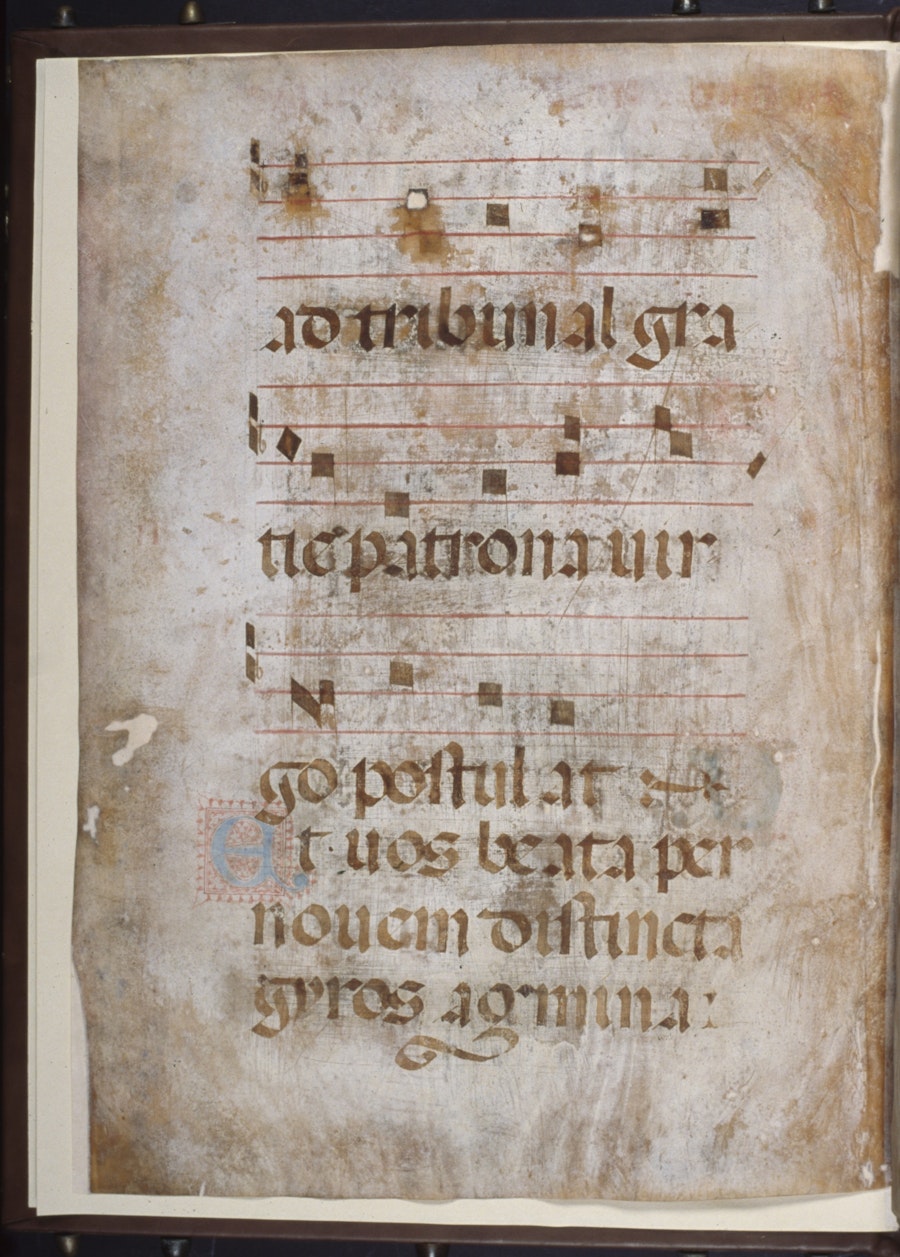 ad tribunal gra
tie patrona uir
go postulat
Et uos beata per
nouem distincta
gyros agmina: